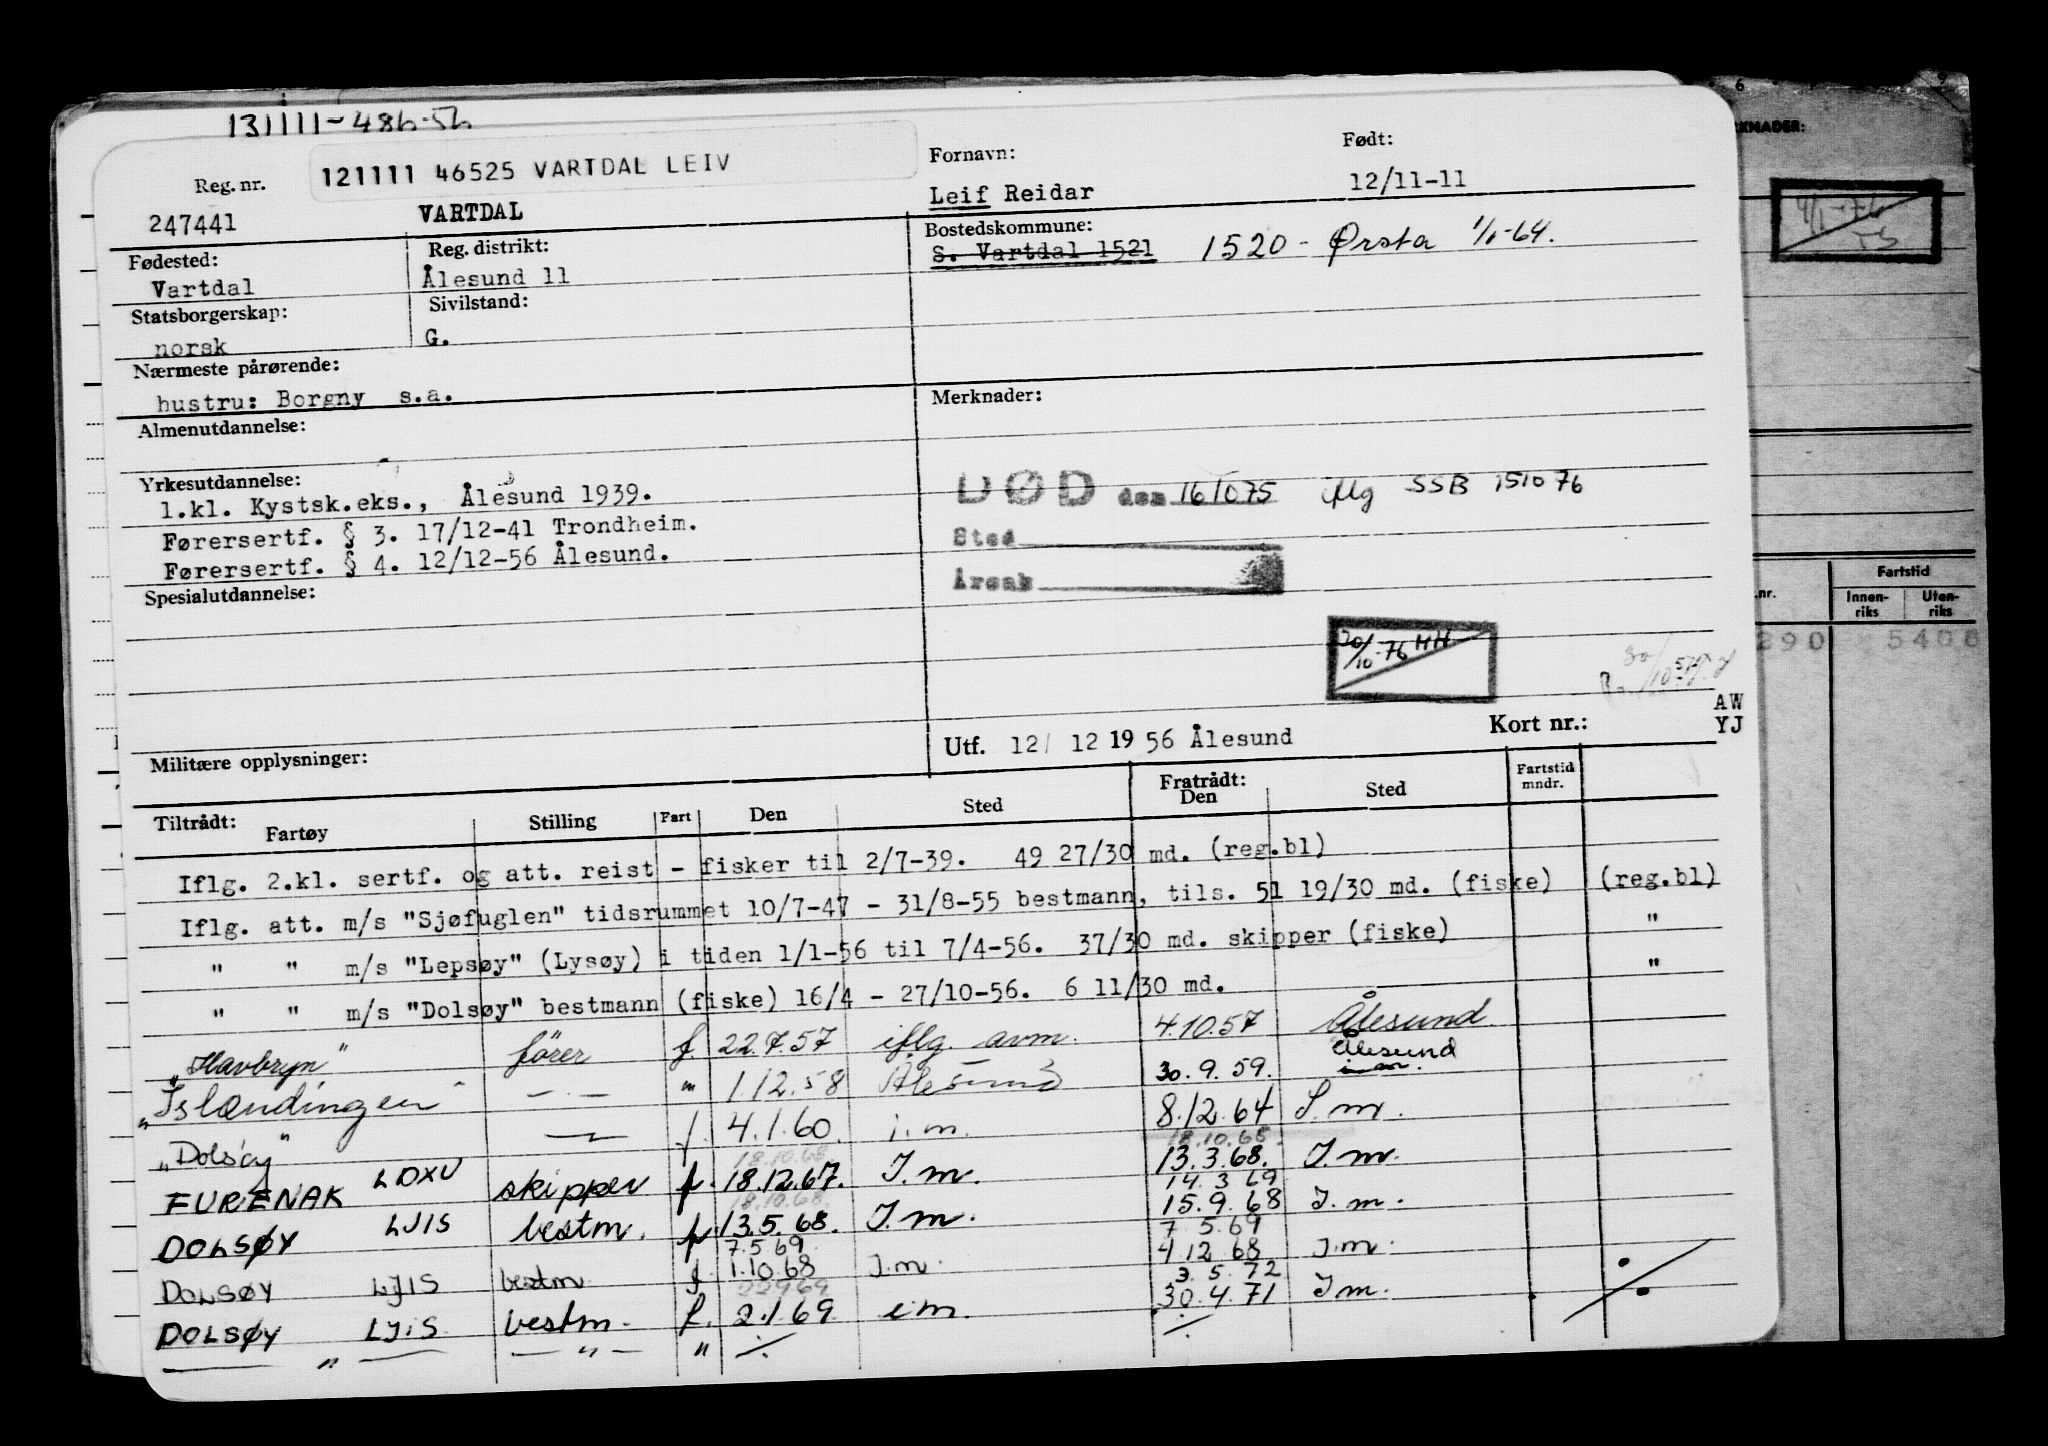 131111-486-56
Reg. nr. 121111 46525 VARTDAL LEIV
Fornavn: Født:
247441 VARTDAL Leif Reidar 12/11-11
Fødested: Reg. distrikt: Bostedskommune:
Vartdal Ålesund 11 S. Vartdal 1521 1520 - Ørsta 1/1-64.
Statsborgerskap: Sivilstand:
norsk G.
Nærmeste pårørende:
hustru: Borgny s.a.
Almenutdannelse: Merknader:
Yrkesutdannelse:
1.kl. Kystsk.eks., Ålesund 1939.
Førersertf. § 3. 17/12-41 Trondheim.
Førersertf. § 4. 12/12-56 Ålesund.
DØD den 161075 iflg SSB 151076
Sted
Årsak
Spesialutdannelse:
20/10-76 HH
AW
YJ
Militære opplysninger: Utf. 12/ 12 19 56 Ålesund Kort nr.:
Tiltrådt: Fartøy Stilling Fart Den Sted Fratrådt: Den Sted Fartstid mndr.
Iflg. 2.kl. sertf. og att. reist - fisker til 2/7-39. 49 27/30 md. (reg.bl)
Iflg. att. m/s "Sjøfuglen" tidsrummet 10/7-47 - 31/8-55 bestmann, tils. 51 19/30 md. (fiske) (reg.bl)
" " m/s "Lepsøy" (Lysøy) i tiden 1/1-56 til 7/4-56. 37/30 md. skipper (fiske) "
" " m/s "Dolsøy" bestmann (fiske) 16/4 - 27/10-56. 6 11/30 md. "
"Havbryn" fører f. 22.7.57 iflg. avm. 4.10.57 Ålesund
"Islændingen" - . - " 1.12.58 Ålesund 30.9.59. Ålesund
"Dolsøy" f. 4.1.60. i.m. 8.12.64 I.m.
18.10.68. 18.10.68.
FURENAK LDXU skipper f. 18.12.67. I.m. 13.3.68. I.m.
18.10.68 14.3 69
DOLSØY LJIS bestm. f. 13.5.68. I.m. 15.9.68 I.m.
7.5.69 7.5.69
DOLSØY LJIS bestm f. 1.10.68 I.m. 4.12.68 I.m.
22969 3.5.72
DOLSØY LJIS bestm. f. 2.1.69. i.m. 30.4.71 I.m.
— " — — " — " ./. ./.
6
KNADER:
4/1-76
.nr. Fartstid
Innenriks Utenriks
290 5406